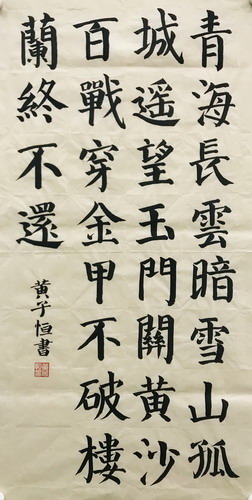 青海長雲暗雪山孤
城遥望玉門關黄沙
百戰穿金甲不破樓
蘭終不還
黄子恒書